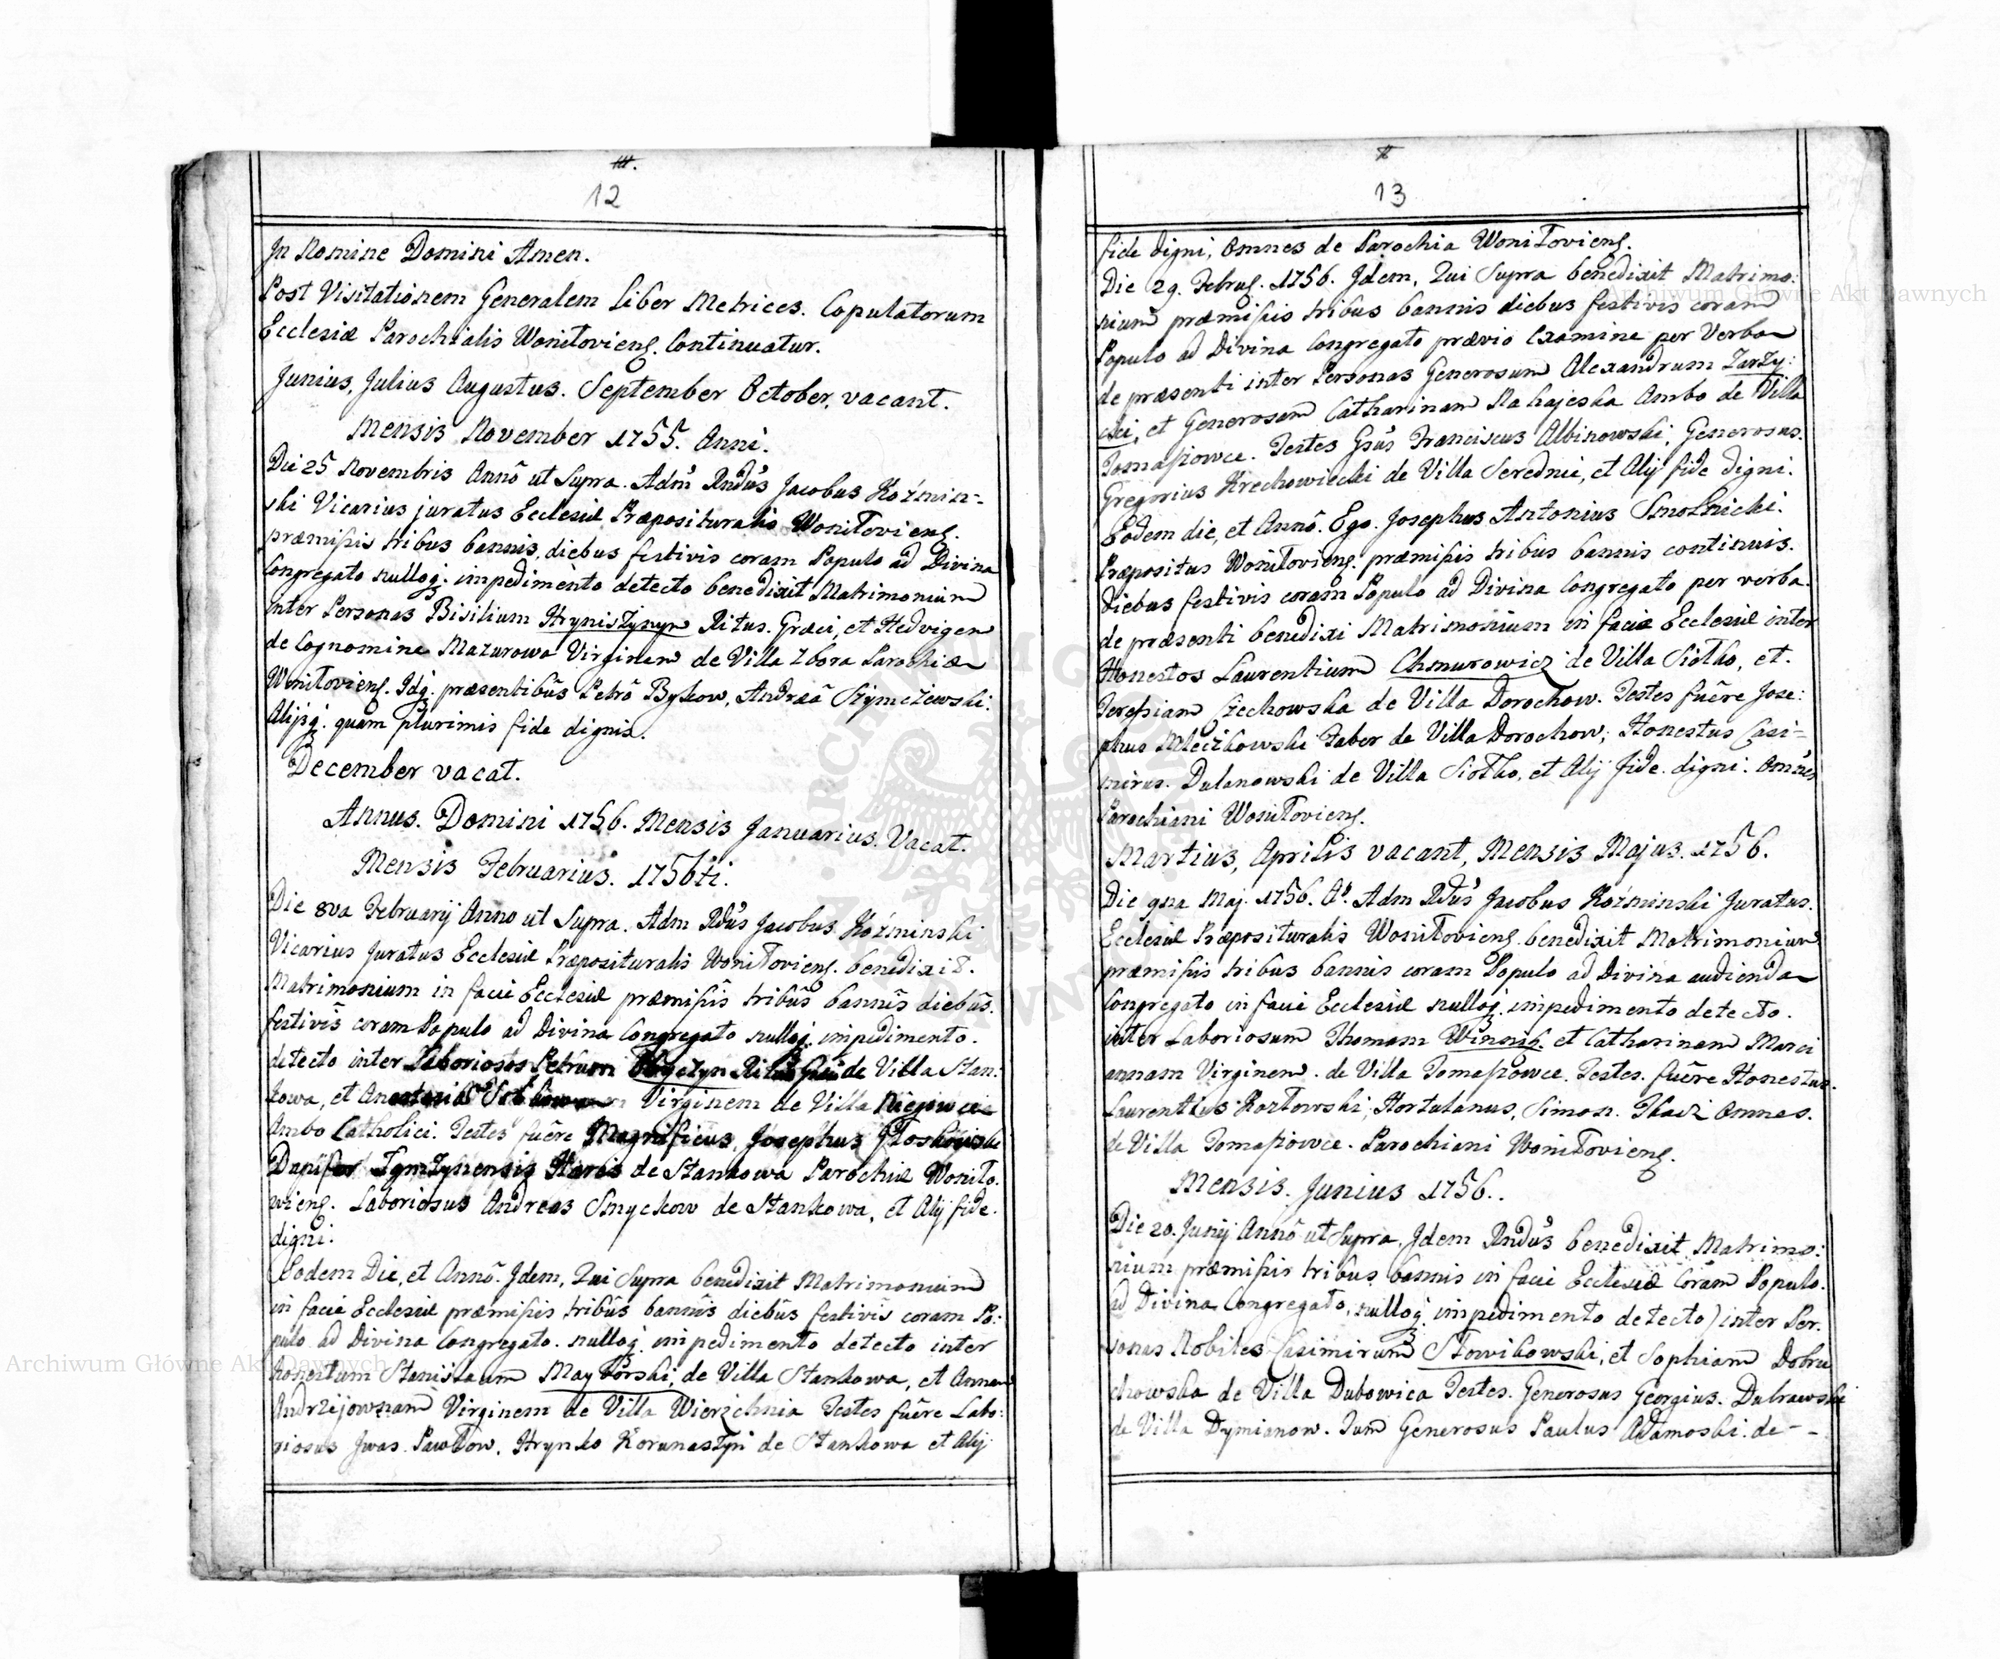 12
In Nomine Domini Amen.
Post Visitationem Generalem Liber Metrices. Copulatorum
Ecclesiæ Parochialis Woniłoviens. Continuatur.
Junius, Julius Augustus. September October, vacant.
Mensis November 1755. Anni.
Die 25 Novembris Annô ut Supra. Adm Rndus Jacobus Koźmin=
ski Vicarius juratus Ecclesiæ Præposituralis Woniłoviens.
præmissis tribus bannis, diebus festivis coram Populo ad Divina
Congregato nulloq; impedimento detecto benedixit Matrimonium
inter Personas Bisilium Hryniszynyn Ritus. Græci, et Hedvigem
de Cognomine Mazurowa Virginem de Villa Zbora Parochiæ
Woniłoviens. Idq; præsentibûs Petrô Bykow, Andreâ Szymczewski.
Alijsq; quam plurimis fide dignis.
December vacat.
Annus. Domini 1756. Mensis Januarius. Vacat.
Mensis Februarius. 1756ti.
Die 8va Februarij Anno ut Supra. Adm Rdus Jacobus Koźminski
Vicarius Juratus Ecclesiæ Præposituralis Woniłoviens. benedixit.
Matrimonium in facie Ecclesiæ præmissîs tribûs bannîs diebûs.
festivîs coram Populo ad Divina Congregato nulloq; impedimento.
detecto inter Laboriosos Petrum Ritus de Villa Stan:
kowa, et Virginem de Villa
Ambo Catholici. Testes fuêre Magnificus, Josephus
Dapifer de Stankowa Parochiæ Woniło.
wiens. Laboriosus Andreas Smyckow de Stankowa, et Alij fide.
digni.
Eodem Die, et Annô. Idem, Qui Supra benedixit Matrimonium
in facie Ecclesiæ præmissis tribûs bannîs diebus festivis coram Po:
pulo ad Divina Congregato. nulloq; impedimento detecto inter
Honestum Stanisłaum Mayborski, de Villa Stankowa, et Annam
Andrzijownam Virginem de Villa Wierzchnia Testes fuêre Labo:
riosus Iwas. Pawłow, Hrynko Korunastyn de Stankowa et Alij
13
fide digni, Omnes de Parochia Woniłoviens.
Die 29. Februs. 1756. Idem, Qui Supra benedixit Matrimo:
nium præmissis tribus bannis diebus festivis coram
Populo ad Divina Congregato prævio Examine per Verba
de præsenti inter Personas Generosum Alexandrum Zarzy:
cki, et Generosam Catharinam Nahajeska Ambo de Villa
Tomaszowce. Testes Gsus Franciscus Albinowski, Generosus.
Gregorius Krechowiecki de Villa Serednie, et Alij fide digni.
Eodem die, et Annô. Ego. Josephus Antonius Smolnicki.
Præpositus Woniłoviens. præmissis tribus bannis continuis.
Diebus festivis coram Populo ad Divina Congregato per verba.
de præsenti benedixi Matrimonium in facie Ecclesiæ inter
Honestos Laurentium Chmurowicz de Villa Siołko, et.
Teressiam Czechowska de Villa Dorochow. Testes fuêre Jose:
phus Mleczkowski Faber de Villa Dorochow, Honestus Casi=
mirus. Dulanowski de Villa Siołko, et Alij fide. digni. Omnes
Parochiani Woniłoviens.
Martius, Aprilis vacant, Mensis Majus. 1756.
Die 9na Maj. 1756. Ao. Adm Rdus Jacobus Koźminski Juratus.
Ecclesiæ Præposituralis Woniłoviens. benedixit Matrimonium
præmissis tribus bannis coram Populo ad Divina audienda
Congregato in facie Ecclesiæ nulloq; impedimento detecto.
inter Laboriosum Thomam Winnik. et Catharinam Mari
annam Virginem. de Villa Tomaszowce. Testes. fuêre Honestus.
Laurentius Kozłowski, Hortulanus, Simon. Tkacz Omnes.
de Villa Tomaszowce. Parochiani Woniłoviens.
Mensis. Junius 1756..
Die 20. Junij Annô ut Supra, Idem Rndus benedixit Matrimo:
nium præmissis tribus bannis in facie Ecclesiæ Coram Populo.
ad Divina Congregato, nulloq; impedimento detecto) inter Per.
sonas Nobiles Casimirum Słowikowski, et Sophiam Dobru
chowska de Villa Dubowica Testes. Generosus Georgius. Dubrawski
de Villa Dymianow. Tum Generosus Paulus Adamoski. de - -
Archiwum Główne Akt Dawnych
Archiwum Główne Akt Dawnych